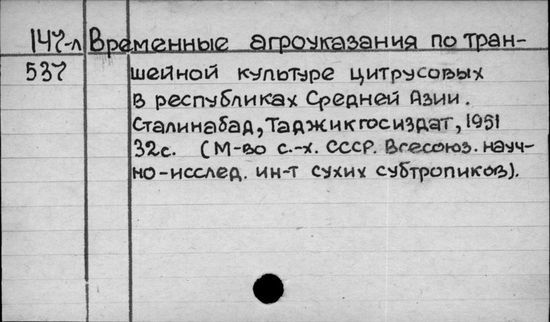 147-л Временные агроуказания по тран-
537 шейной культуре цитрусовых
в республиках Средней Азии.
Сталинабад, Таджикгосиздат, 1951
32с. (М-во с.-х. СССР. Всесоюз. науч-
но-исслед. ин-т сухих субтропиков).